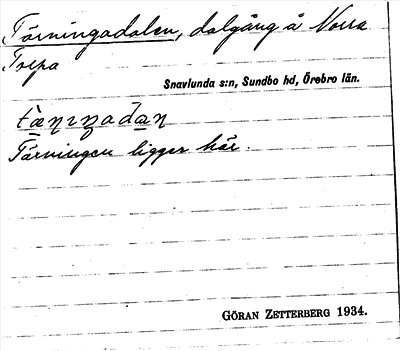 Tärningadalen, dalgång å Norra
Torpa
Snavlunda s:n, Sundbo hd, Örebro län.
tæ̀ṇıŋadaṇ
Tärningen ligger här.
GÖRAN ZETTERBERG 1934.